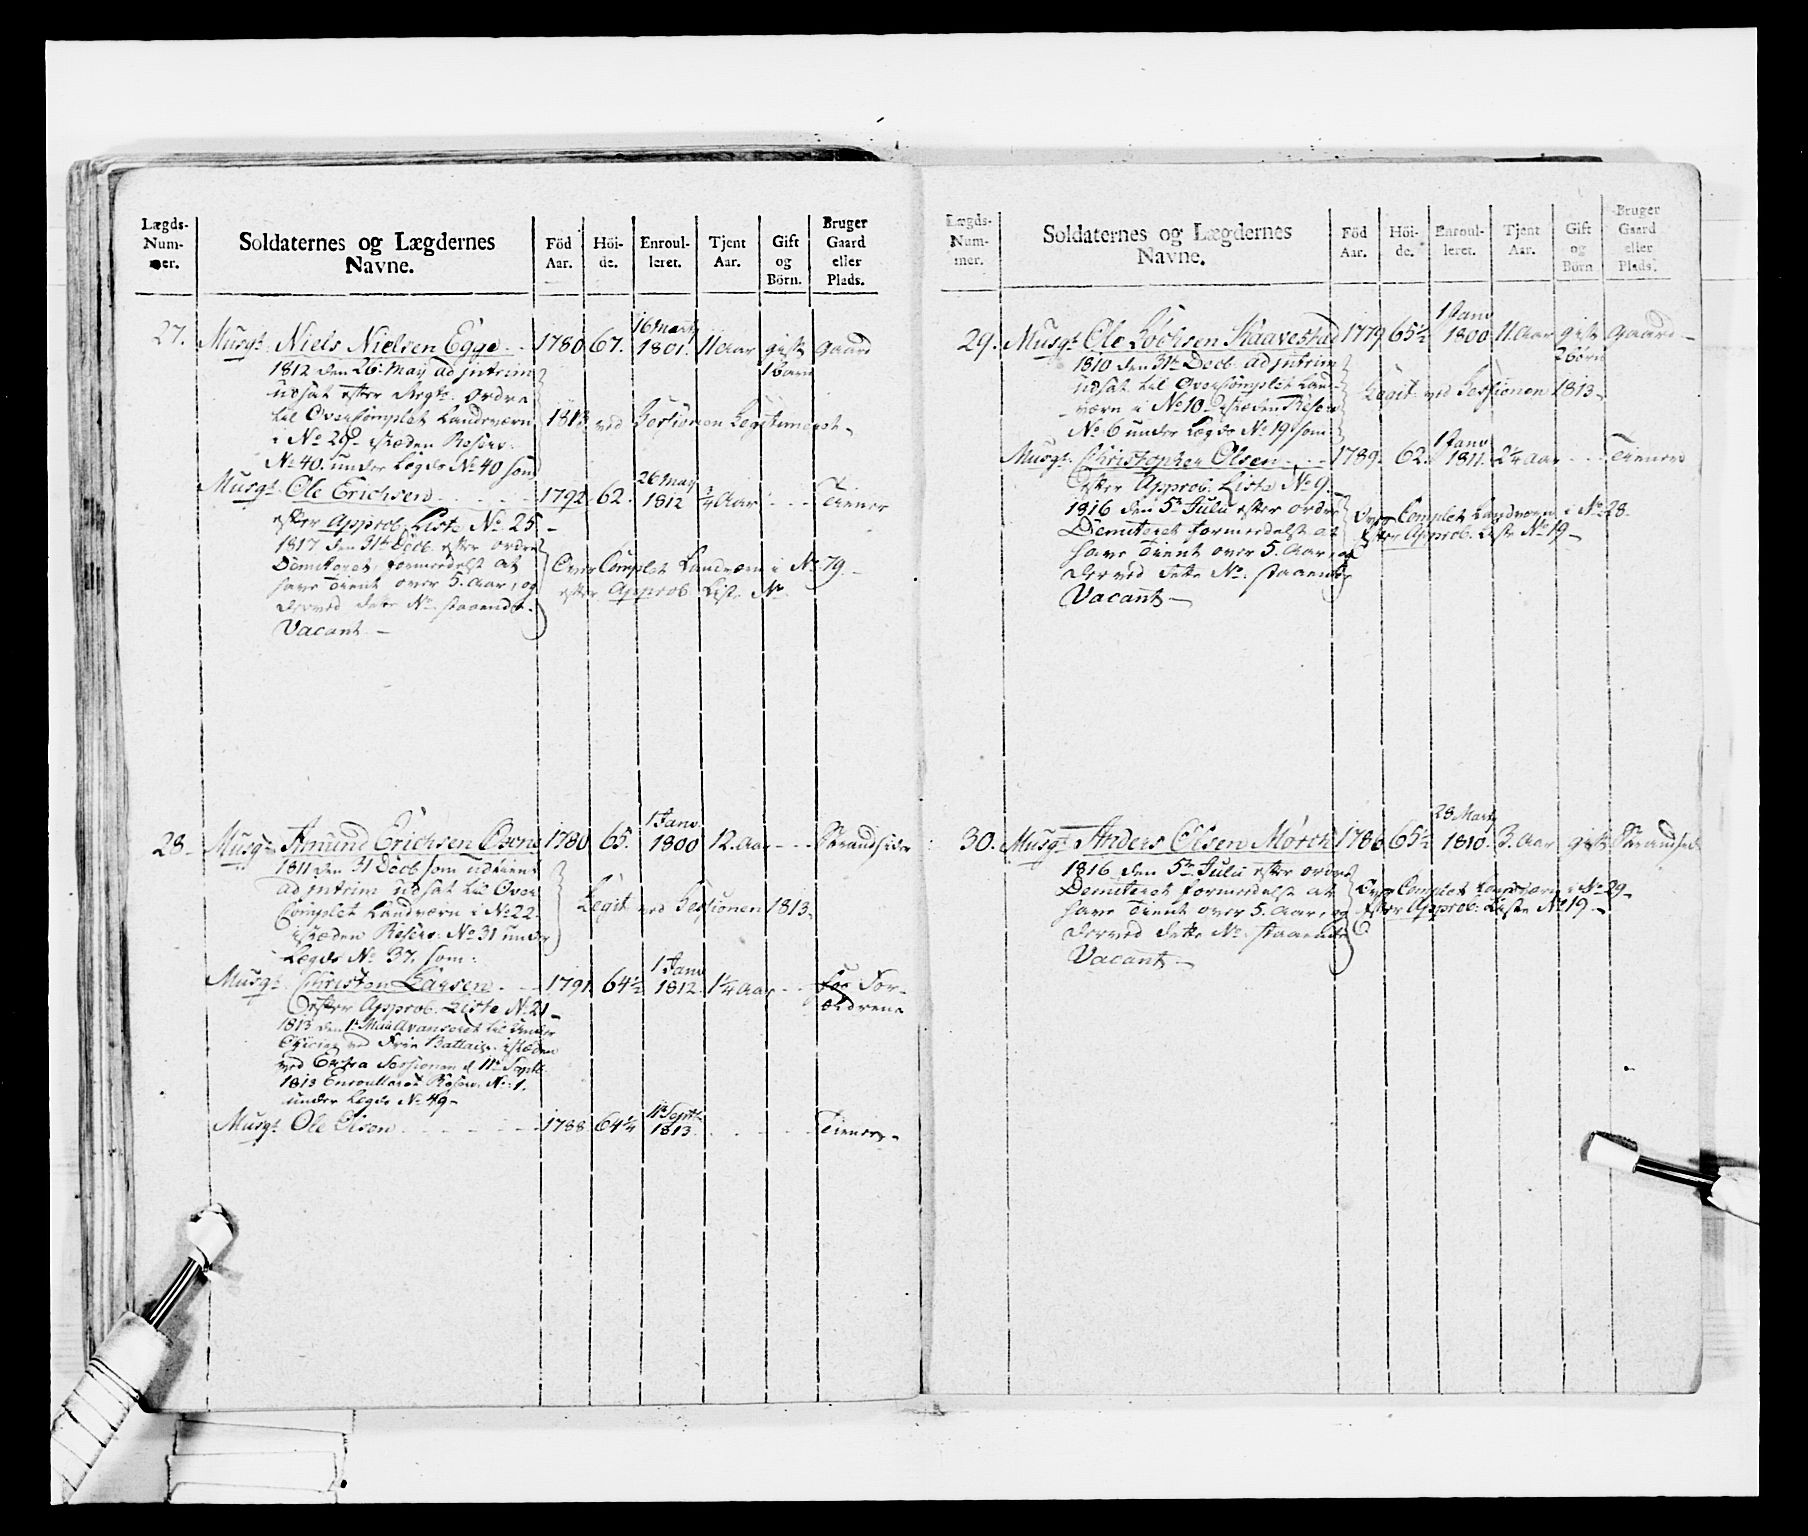 Lægds-
Num-
mer.
Soldaternes og Lægdernes
Navne.
Föd
Aar.
Höi-
de.
Enroul-
leret.
Tjent
Aar.
Gift
og
Börn.
Bruger
Gaard
eller
Plads.
27. Musqt. Niels Nielsen Egge 1780 67. 16 Marty 1801. 11 Aar gift 1 barn Gaard
1812 den 26 May ad intrim
udsat efter Regts. ordre
til Overcomplet Landværn
i No 29 isteden Reserv:
No 40. under Legds No 40 som
1813 ved Sessionen Legitimeret.
Musqt. Ole Erichsen 1792 62. 26 May 1812 ¾ Aar - - - Tiener
efter Approb. Liste No. 25.
1817 den 31te Decb. efter ordre
Demiteret, formedelst at
have Tient over 5. Aar, og
derved dette No. staaende
Vacant -
Over Complet Landværn i No. 79.
efter Approb. Liste No.
28. Musqt. Amund Erichsen 1780 65. 1 Janv 1800 12. Aar - - - Strandsider
1811 den 31 Decb som udtient
ad intrim udsat til Over
Complet Landværn i No 22.
isteden Reserv: No 31 under
Legds No 37. som:
Legit ved Sessionen 1813.
Musqt. Christen Larsen 1791 64½ 1 Janv 1812. 1¼ Aar - - - Hos For-
ældrene
efter Approb. Liste No 21 -
1813 den 1te Avanseret til Under
Officier ved Battail. isteden
ved Extra Sessionen d 11te Septb.
1813 Enroulleret Reserv. No: 1.
under Legds No 49 -
Musqt. Ole Olsen 1788 64¼ 11te Septb. 1813. Tiener -
Lægds-
Num-
mer.
Soldaternes og Lægdernes
Navne.
Föd
Aar.
Höi-
de.
Enroul-
leret.
Tjent
Aar.
Gift
og
Börn
Bruger
Gaard
eller
Plads.
29. Musqt. Ole Skaavestad 1779 65½ 1 Janv 1800. 11. Aar gift 2 börn Gaard -
1810 den 31te Decb. ad intrim
udsat til Overcomplet Land-
værn i No 10 isteden Reserv
No 6 under Legds No 19 som
Legit. ved Sessionen 1813 -
Musqt. Christopher Olsen 1789 62. 1 Janv 1811. 2¼ Aar - - - Tiener
efter Approb. Liste No 9.
1816 den 5te July efter ordre
Demiteret formedelst at
have Tient over 5. Aar, og
derved dette No. staaende
Vacant -
Over Complet Landværn i No 28.
efter Approb. Liste No 19 -
30. Musqt. Anders Olsen Mörch 1786 65½ 28 Marty 1810. 3. Aar gift Strandsid
1816 den 5te July efter ordre
Demiteret formedelst at
have Tient over 5. Aar, og
derved dette No. staaende
Vacant -
Over Complet Landværn i No 29 -
efter Approb: Liste No 19 -